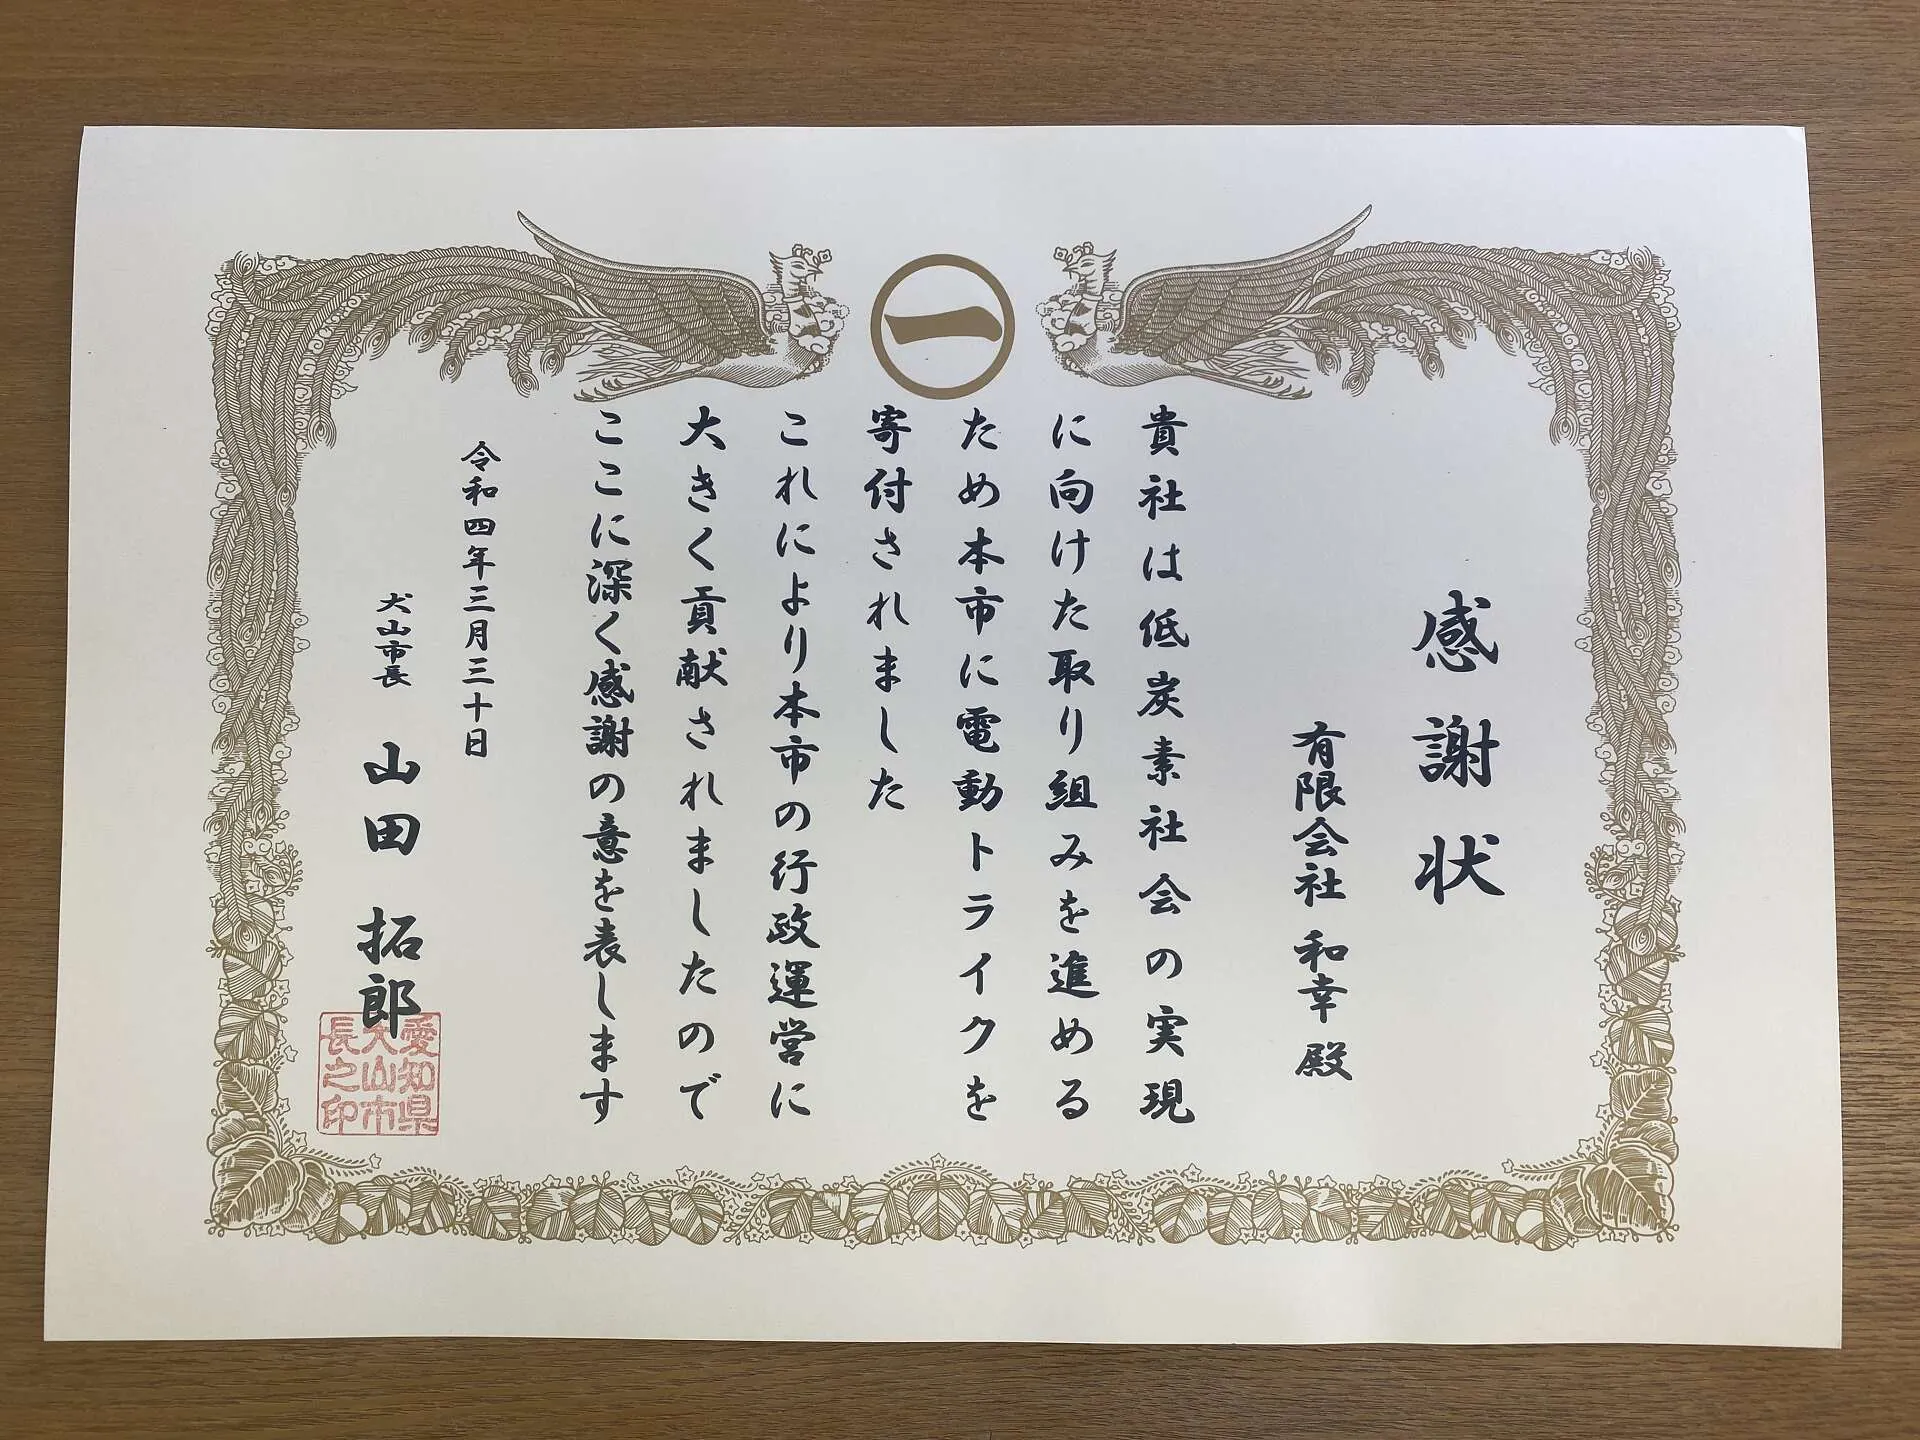 一
感謝状
有限会社 和幸 殿
貴社は低炭素社会の実現
に向けた取り組みを進める
ため本市に電動トライクを
寄付されました
これにより本市の行政運営に
大きく貢献されましたので
ここに深く感謝の意を表します
令和四年三月三十日
犬山市長 山田 拓郎
愛知県
犬山市
長之印